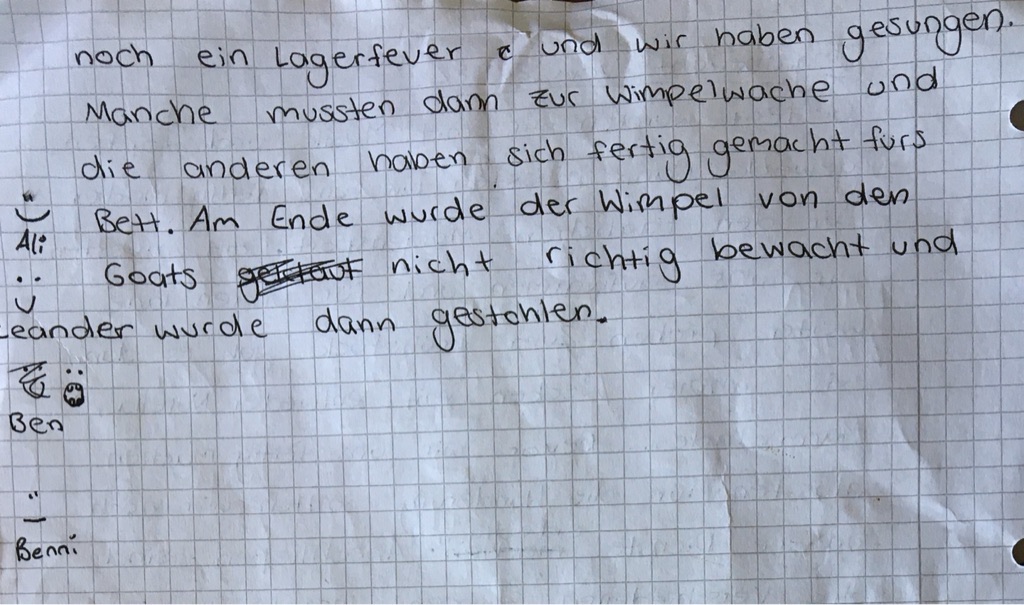 noch ein Lagerfeuer und wir haben gesungen.
Manche mussten dann zur Wimpelwache und
die anderen haben sich fertig gemacht fürs
Bett. Am Ende wurde der Wimpel von den
Ali
Goats nicht richtig bewacht und
Leander wurde dann gestohlen.
Ben
Benni